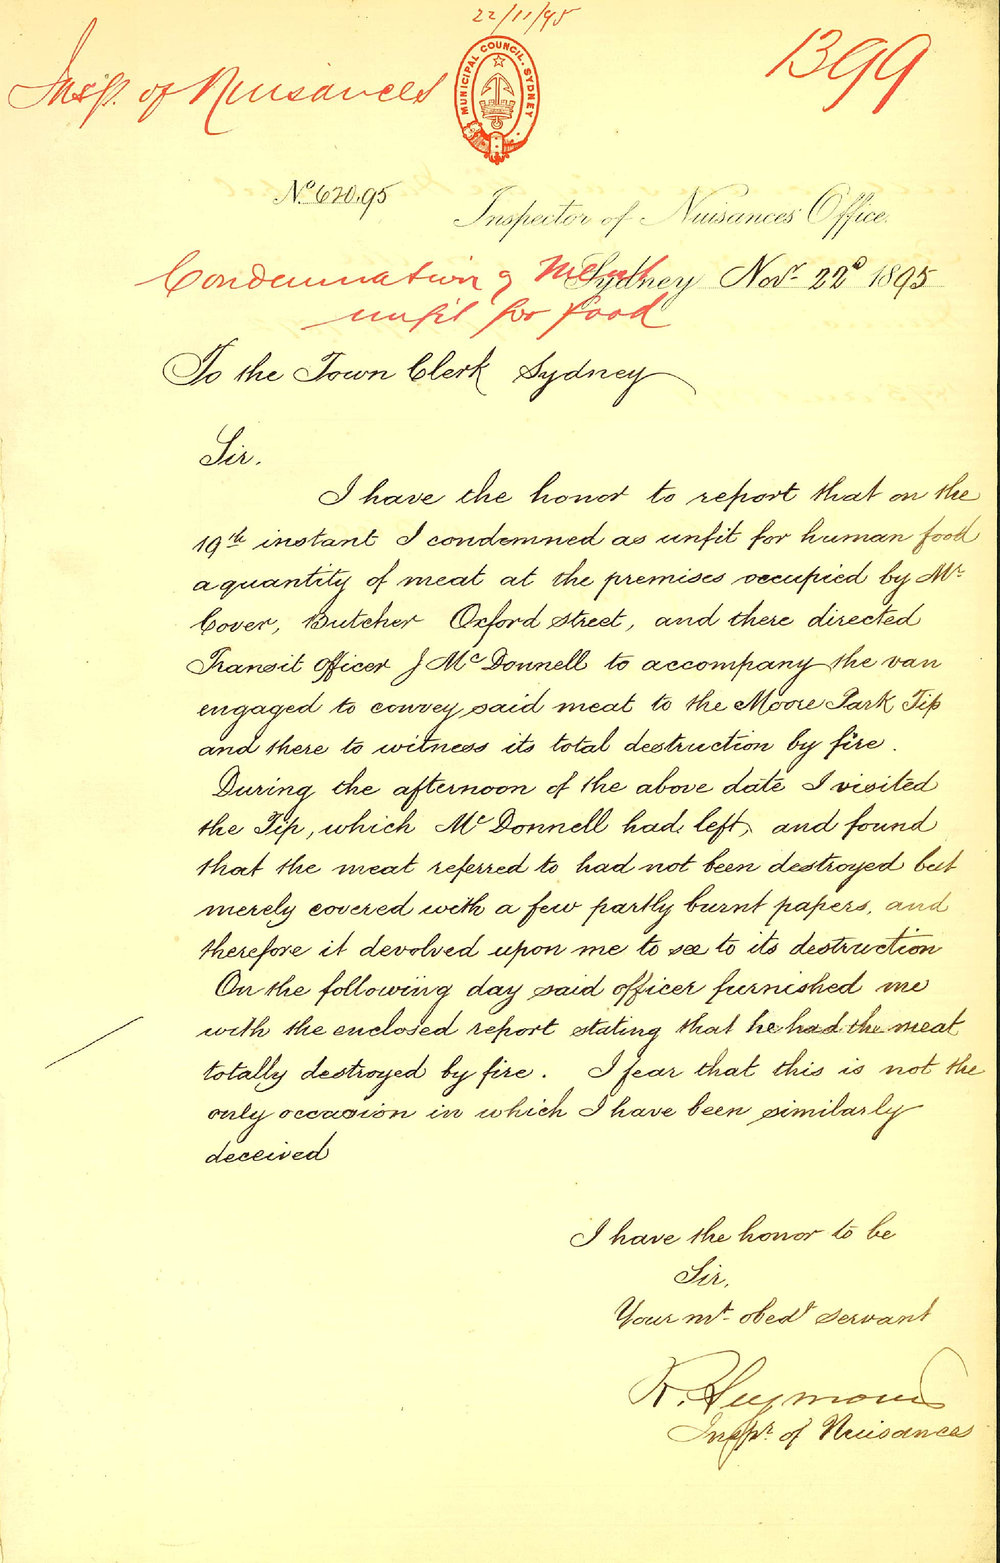 22/11/95
Insp. of Nuisances
1399
MUNICIPAL COUNCIL. SYDNEY
No. 620.95
Inspector of Nuisances Office.
Condemnation of Meat
unfit for food
Sydney Novr. 22d 1895
To the Town Clerk Sydney
Sir.
I have the honor to report that on the
19th instant I condemned as unfit for human food
a quantity of meat at the premises occupied by Mr.
Cover, Butcher Oxford street, and there directed
Transit officer J McDonnell to accompany the van
engaged to convey said meat to the Moore Park Tip
and there to witness its total destruction by fire.
During the afternoon of the above date I visited
the Tip, which McDonnell had left, and found
that the meat referred to had not been destroyed but
merely covered with a few partly burnt papers, and
therefore it devolved upon me to see to its destruction
On the following day said officer furnished me
with the enclosed report stating that he had the meat
totally destroyed by fire. I fear that this is not the
only occasion in which I have been similarly
deceived
I have the honor to be
Sir,
Your mt. obedt servant
R. Seymour
Inspr. of Nuisances